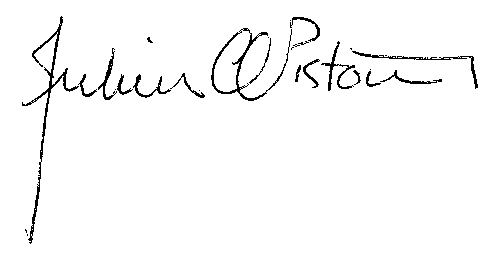 Julius C Piston